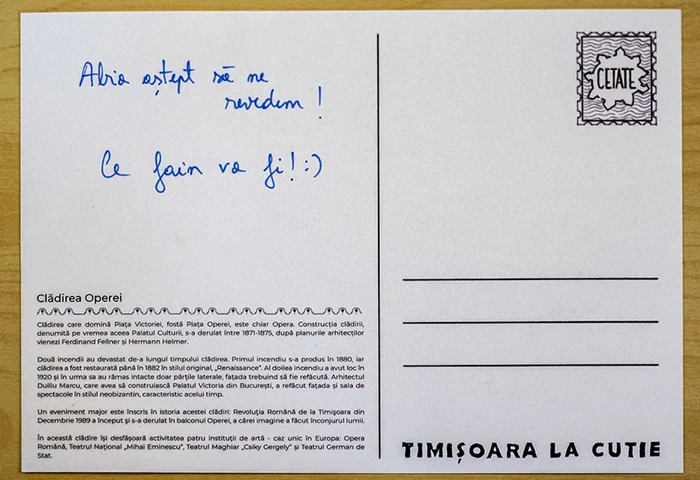 Abia aștept să ne
revedem !
Ce fain va fi! :)
CETATE
Clădirea Operei
Clădirea care domină Piața Victoriei, fostă Piața Operei, este chiar Opera. Construcția clădirii,
denumită pe vremea aceea Palatul Culturii, s-a derulat între 1871-1875, după planurile arhitecților
vienezi Ferdinand Fellner și Hermann Helmer.
Două incendii au devastat de-a lungul timpului clădirea. Primul incendiu s-a produs în 1880, iar
clădirea a fost restaurată până în 1882 în stilul original, „Renaissance”. Al doilea incendiu a avut loc în
1920 și în urma sa au rămas intacte doar părțile laterale, fațada trebuind să fie refăcută. Arhitectul
Duiliu Marcu, care avea să construiască Palatul Victoria din București, a refăcut fațada și sala de
spectacole în stilul neobizantin, caracteristic acelui timp.
Un eveniment major este înscris în istoria acestei clădiri: Revoluția Română de la Timișoara din
Decembrie 1989 a început și s-a derulat în balconul Operei, a cărei imagine a făcut înconjurul lumii.
În această clădire își desfășoară activitatea patru instituții de artă - caz unic în Europa: Opera
Română, Teatrul Național „Mihai Eminescu”, Teatrul Maghiar „Csiky Gergely” și Teatrul German de
Stat.
TIMIȘOARA LA CUTIE